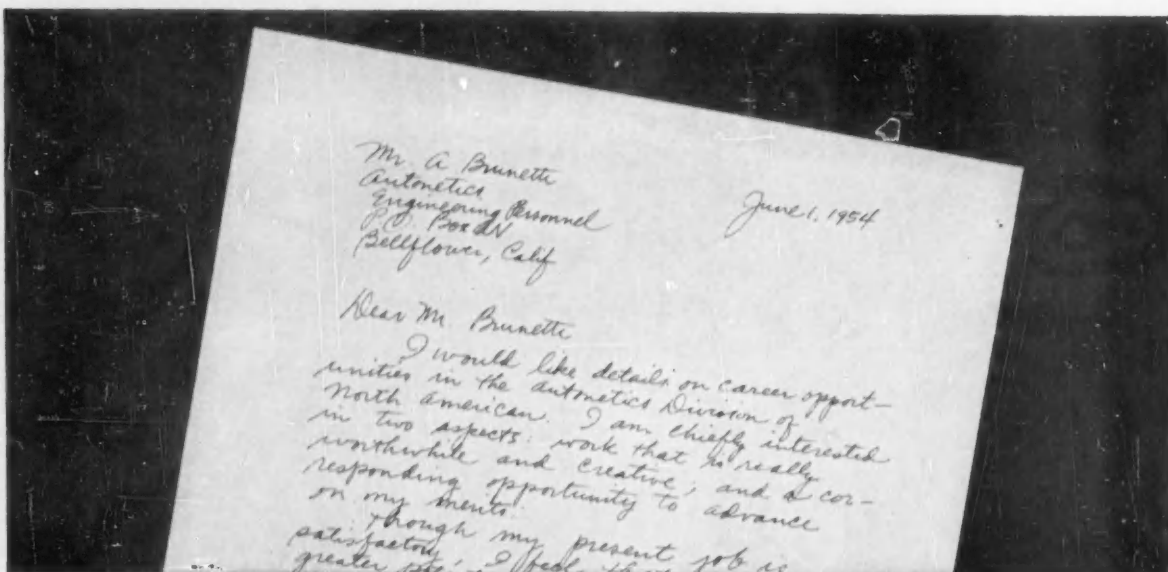 Mr. A Brunette
Autonetics
Engineering Personnel
P.O. Box AN
Bellflower, Calif
June 1, 1954
Dear Mr. Brunette
I would like details on career opport-
unities in the Autonetics Division of
North American. I am chiefly interested
in two aspects: work that is really
worthwhile and creative; and a cor-
responding opportunity to advance
on my merits.
Though my present job is
satisfactory, I feel
greater